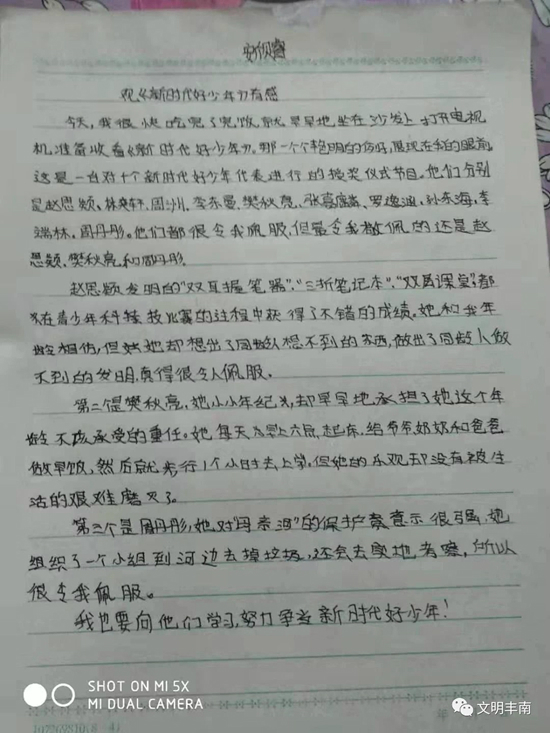 观《新时代好少年》有感
今天,我很快吃完了晚饭就早早地坐在沙发上打开电视
机,准备收看《新时代好少年》。那一个个鲜明的,展现在我的眼前。
这是一台对十个新时代好少年代表进行的授奖仪式节目。他们分别
是赵思颖、林奕轩、周洲、李东曼、樊秋亮、张嘉麟、罗逸涵、孙东海、李
端林、周丹彤。他们都很令我佩服,但最令我敬佩的还是赵
思颖、樊秋亮和周丹彤。
赵思颖发明的"双耳握笔器"、"三折笔记本"、"双层课堂"都
在青少年科技比赛的过程中获得了不错的成绩。她和我年
龄相仿,但她却想出了同龄人想不到的东西,做出了同龄人做
不到的发明,真得很令人佩服。
第二个是樊秋亮,她小小年纪,却早早地承担了她这个年
龄不该承受的重任。她每天早上六点起床,给爷爷奶奶和爸爸
做早饭,然后就步行1个小时去上学,但她的乐观却没有被生
活的艰难磨灭了。
第三个是周丹彤,她对"母亲河"的保护意识很强,她
组织了一个小组到河边去捡垃圾,还会去实地考察,所以
很令我佩服。
我也要向他们学习,努力争当新时代好少年!
SHOT ON MI 5X
MI DUAL CAMERA
文明丰南